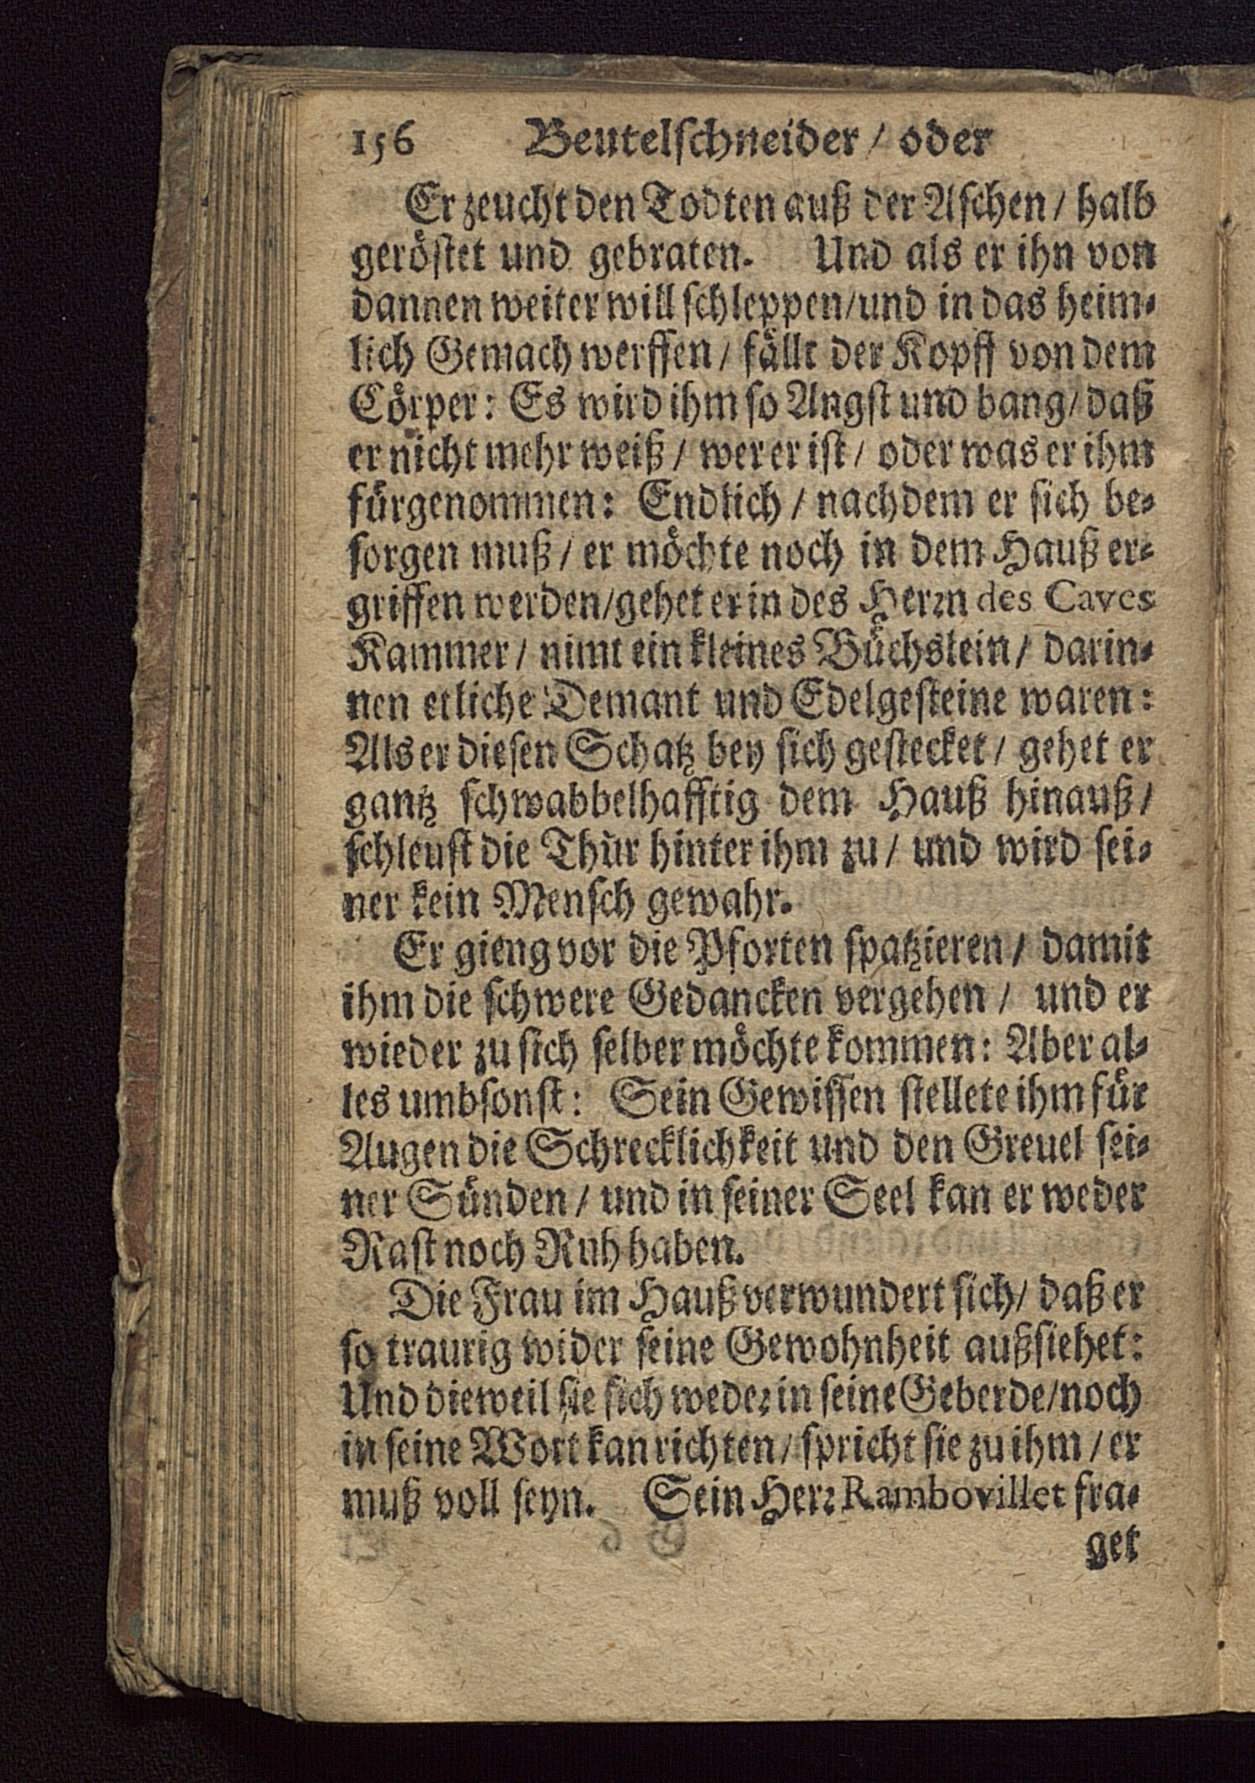 156 Beutelſchneider / oder
Er zeucht den Todten auß der Aſchen / halb
geröſtet und gebraten. Und als er ihn von
dannen weiter will ſchleppen/und in das heim-
lich Gemach werffen / fällt der Kopff von dem
Cörper: Es wird ihm ſo Angſt und bang/ daß
er nicht mehr weiß / wer er iſt / oder was er ihm
fürgenommen: Endlich / nachdem er ſich be-
ſorgen muß / er möchte noch in dem Hauß er-
griffen werden/gehet er in des Herꝛn des Caves
Kammer / nimt ein kleines Büchslein / darin-
nen etliche Demant und Edelgeſteine waren:
Als er dieſen Schatz bey ſich geſtecket / gehet er
gantz ſchwabbelhafftig dem Hauß hinauß /
ſchleuſt die Thür hinter ihm zu / und wird ſei-
ner kein Menſch gewahr.
Er gieng vor die Pforten ſpatzieren / damit
ihm die ſchwere Gedancken vergehen / und er
wieder zu ſich ſelber möchte kommen: Aber al-
les umbſonſt: Sein Gewiſſen ſtellete ihm für
Augen die Schrecklichkeit und den Greuel ſei-
ner Sünden / und in ſeiner Seel kan er weder
Raſt noch Ruh haben.
Die Frau im Hauß verwundert ſich/ daß er
ſo traurig wider ſeine Gewohnheit außſiehet:
Und dieweil ſie ſich wedeꝛ in ſeine Geberde/noch
in ſeine Wort kan richten / ſpricht ſie zu ihm / er
muß voll ſeyn. Sein Herꝛ Rambovillet fra-
get